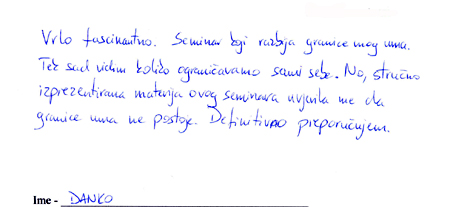 Vrlo fascinantno. Seminar koji razbija granice mog uma.
Tek sad vidim koliko ograničavamo sami sebe. No, stručno
izprezentirana materija ovog seminara uvjerila me da
granice uma ne postoje. Definitivno preporučujem.
Ime - DANKO